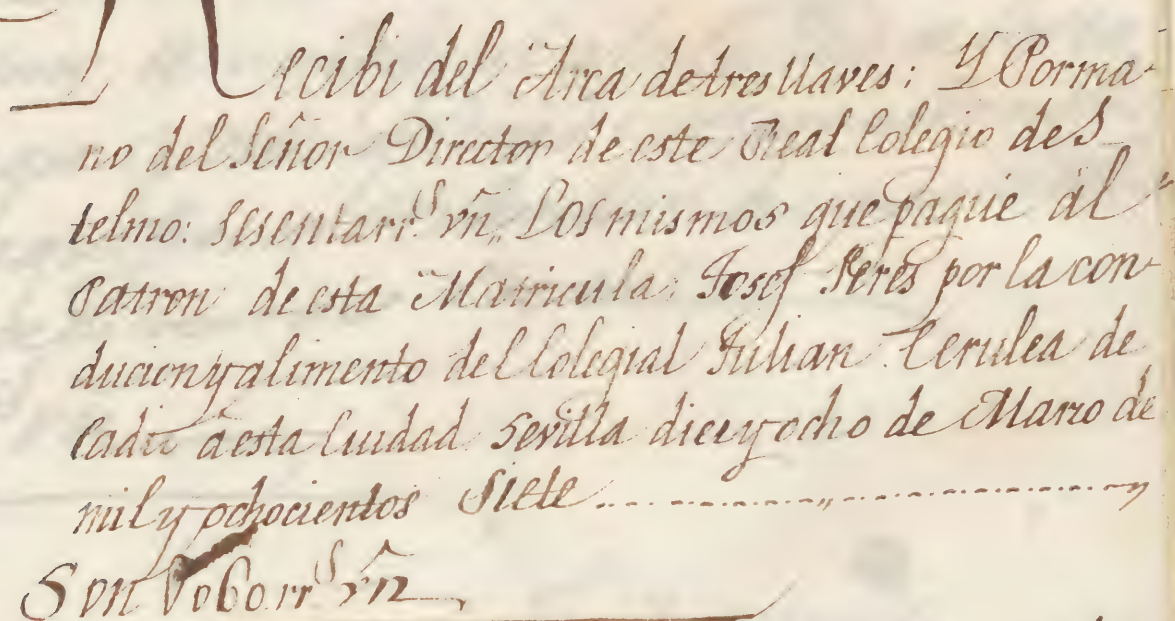 Recibi del Arca de tres llaves: Y Por ma-
no del Señor Director de este Real Colegio de S
telmo: sesenta rr.^s vn,, Los mismos que paguè àl
Patron de esta Matricula: Josef Peres por la con-
ducion y alimento del Colegial Julian Cerulea de
Cadiz à esta Ciudad Sevilla diez y ocho de Marzo de
mil y ochocientos Siete
Son 60 rr^s vn